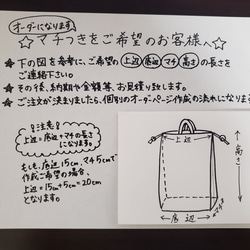 オーダーになります。
☆マチつきをご希望のお客様へ☆
★下の図を参考に、ご希望の上辺底辺マチ高さの長さを
ご連絡下さい。
★その後、納期や金額等、お見積り致します。
★ご注文が決まりましたら、個別のオーダーページ作成の流れになります
!注意!
上辺=底辺+マチの長さ
になります。
もしも、底辺15cm、マチ5cmで
作成ご希望の場合、
上辺=15cm+5cm=20cm
となります。
上辺
高さ
底辺
マチ